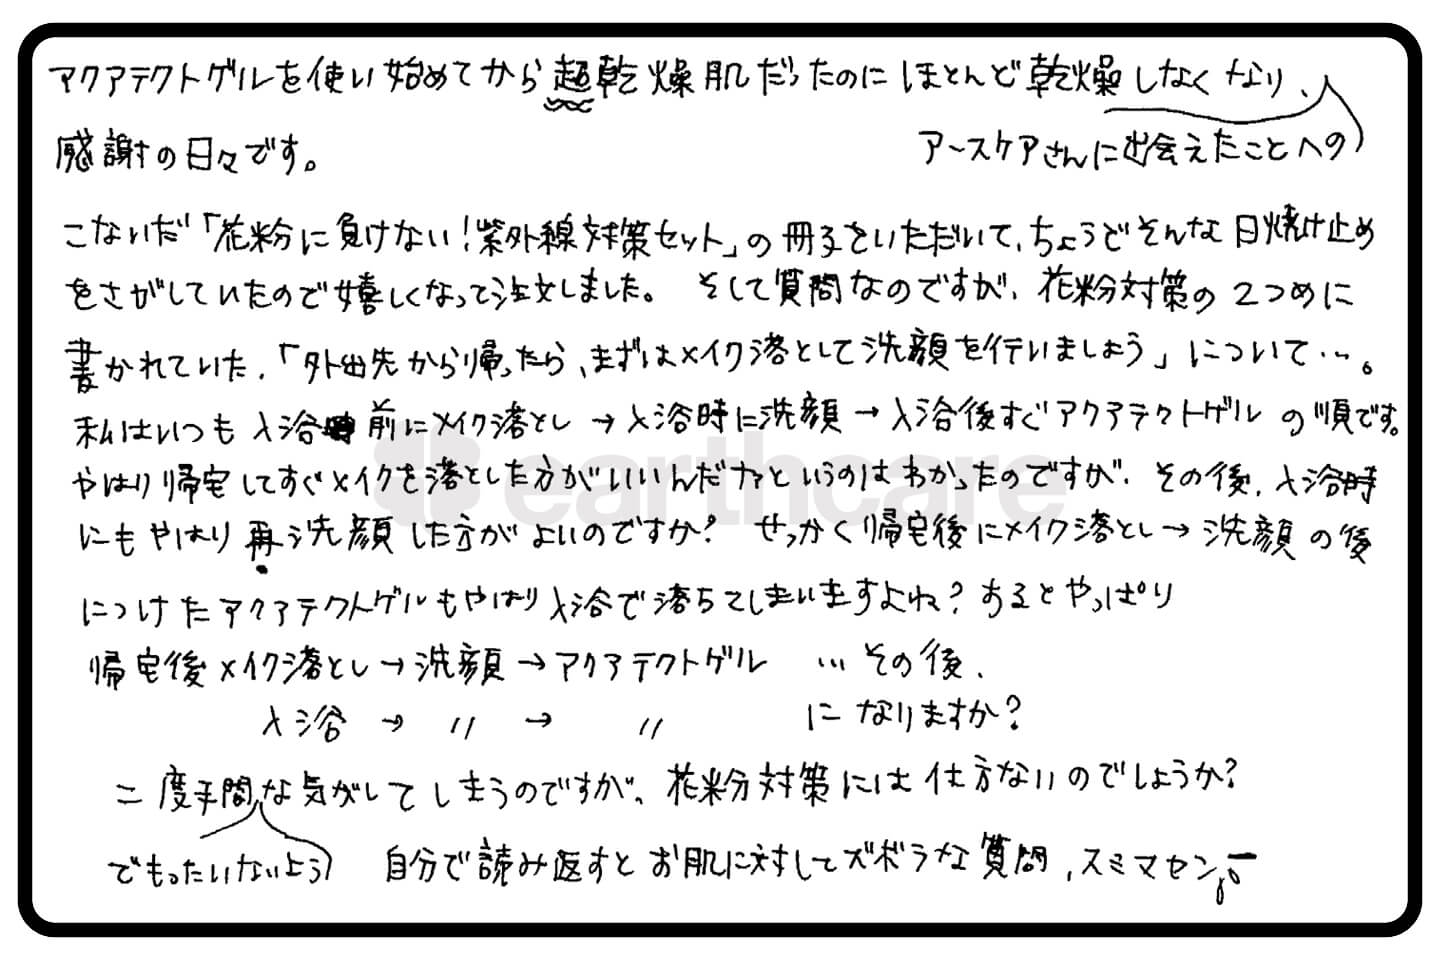 アクアテクトゲルを使い始めてから超乾燥肌だったのにほとんど乾燥しなくなり、
アースケアさんに出会えたことへの
感謝の日々です。
こないだ「花粉に負けない!紫外線対策セット」の冊子をいただいて、ちょうどそんな日焼け止め
をさがしていたので嬉しくなって注文しました。 そして質問なのですが、花粉対策の2つめに
書かれていた、「外出先から帰ったら、まずはメイク落として洗顔を行いましょう」について…。
私はいつも入浴前にメイク落とし→入浴時に洗顔→入浴後すぐアクアテクトゲルの順です。
やはり帰宅してすぐメイクを落とした方がいいんだナァというのはわかったのですが、その後、入浴時
にもやはり再洗顔した方がよいのですか? せっかく帰宅後にメイク落とし→洗顔の後
につけたアクアテクトゲルもやはり入浴で落ちてしまいますよね? あるとやっぱり
帰宅後メイク落とし→洗顔→アクアテクトゲル …その後、
入浴 → 〃 → 〃 になりますか?
二度手間な気がしてしまうのですが、花粉対策には仕方ないのでしょうか?
でもったいないよう 自分で読み返すとお肌に対してズボラな質問、スミマセン
earthcare